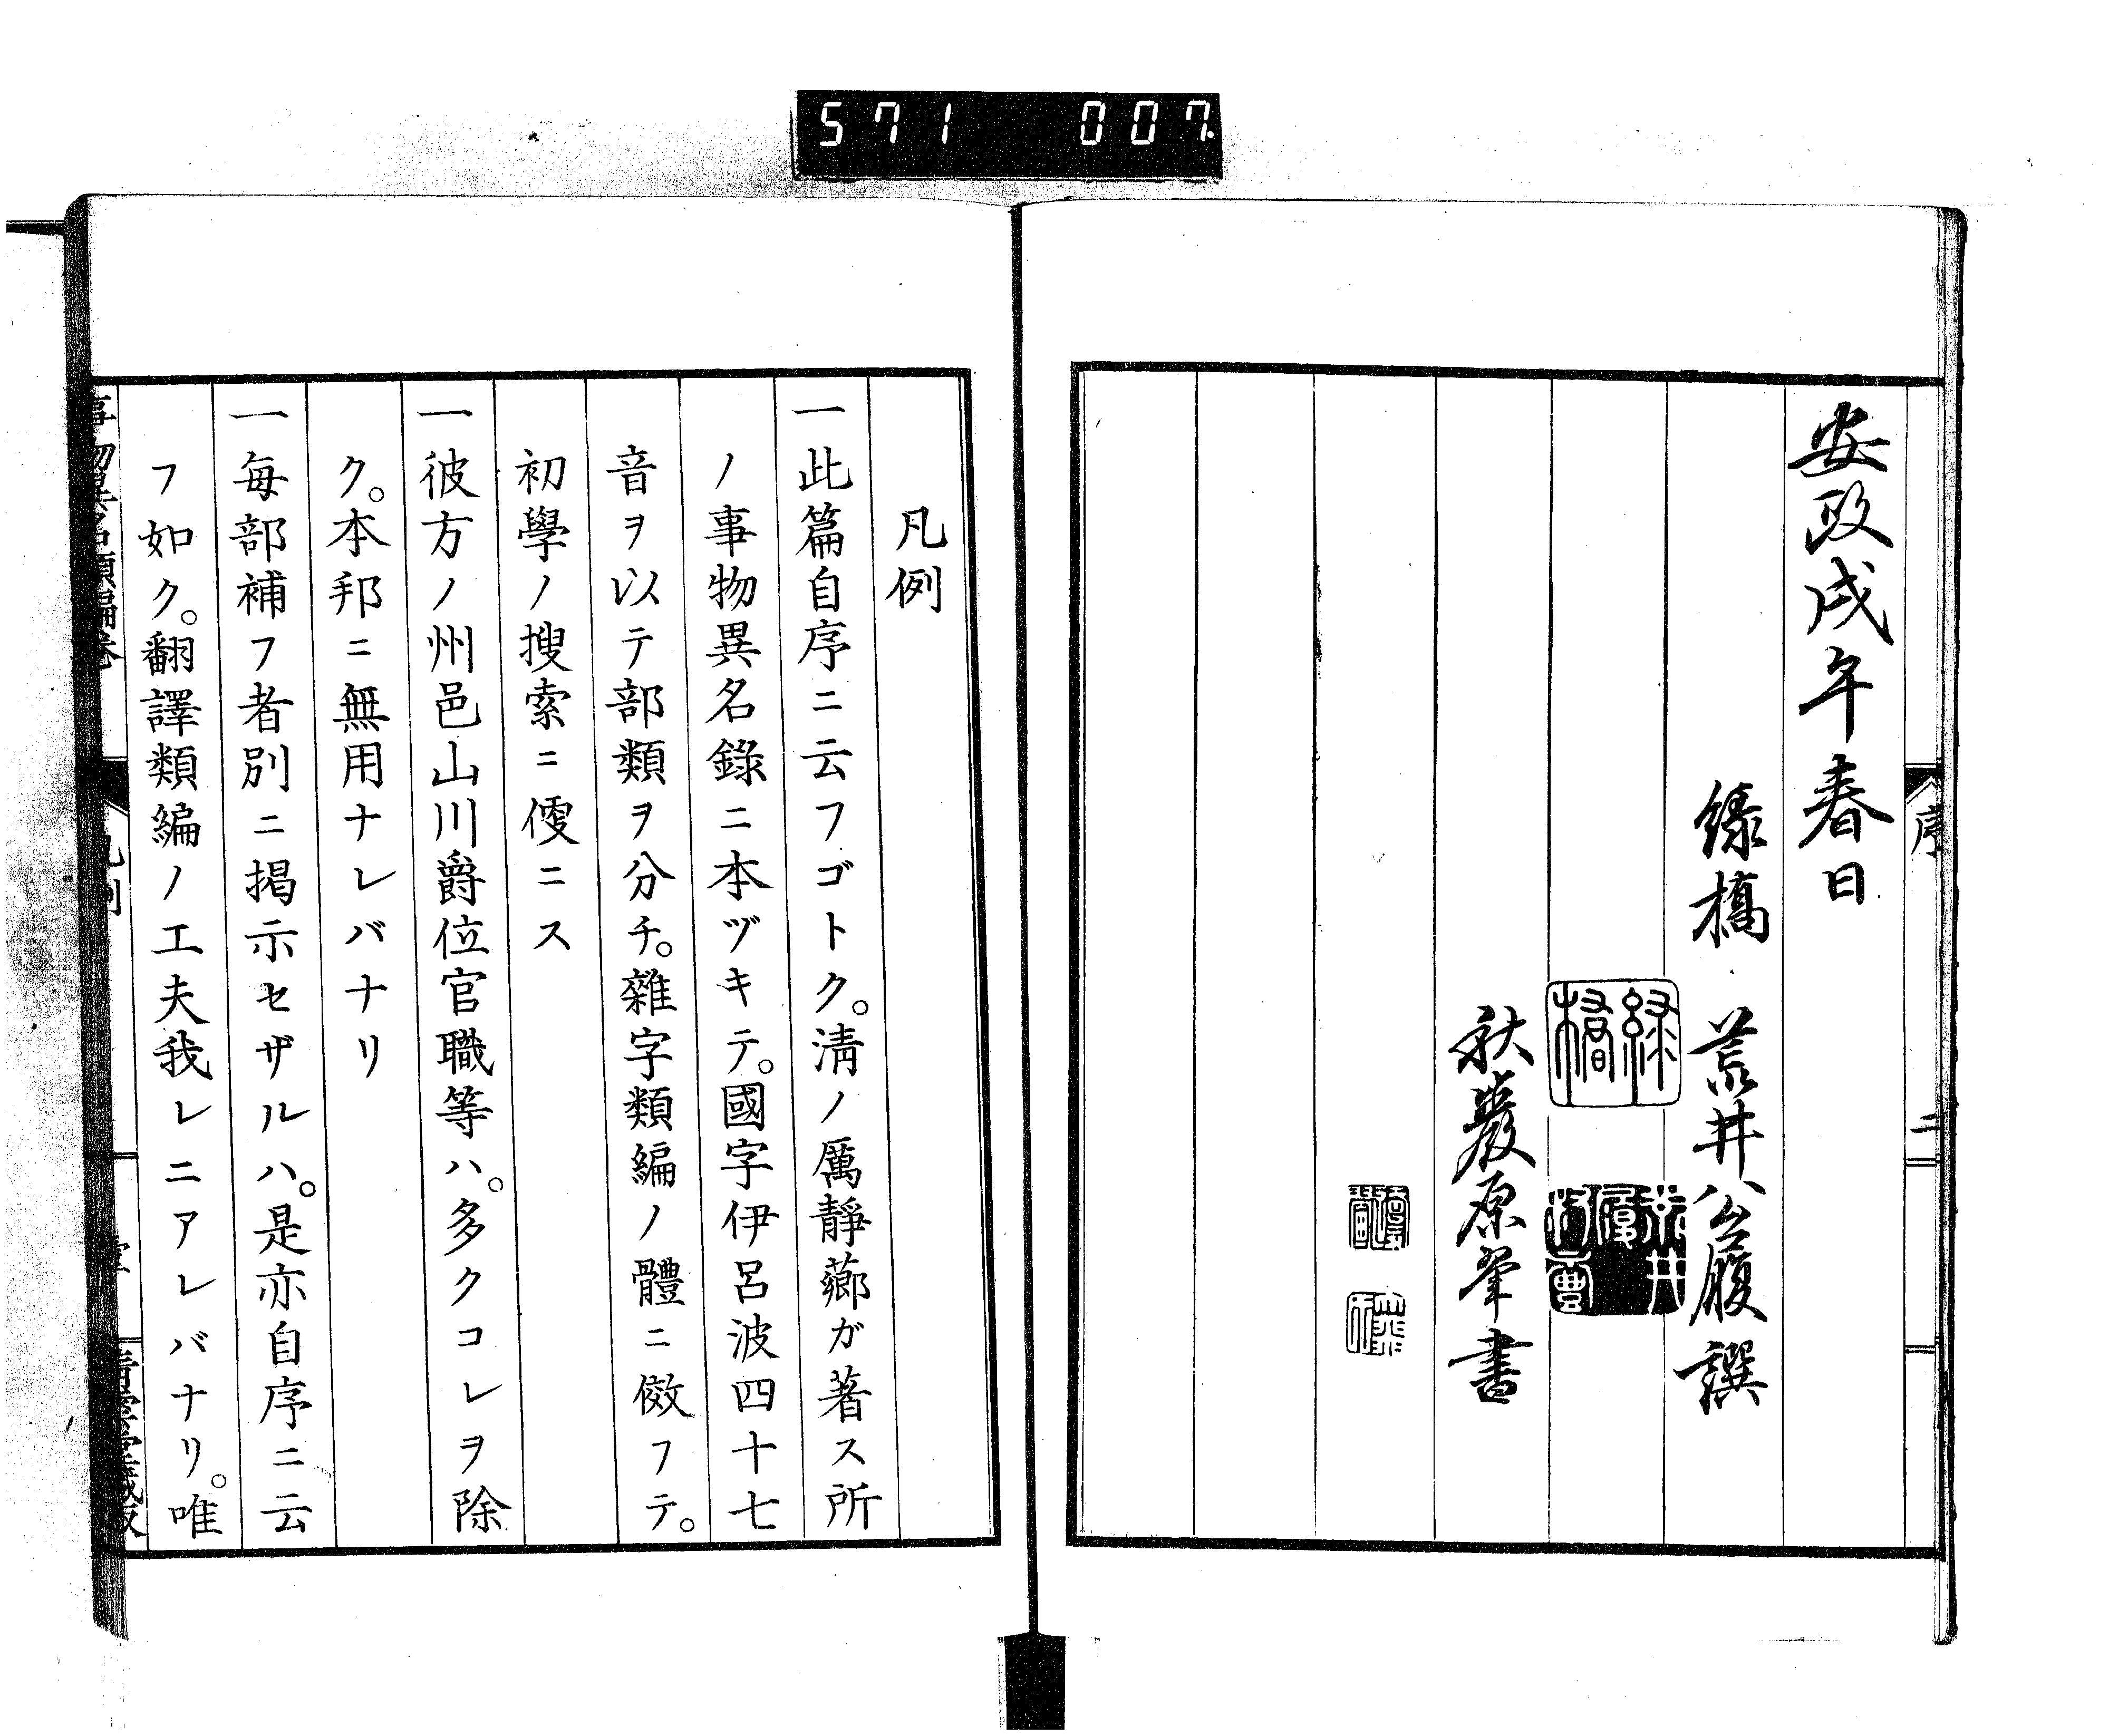 571 007
序 二
安政戌午春日
緑橋 荒井公履譔
緑橋
秋巖原翬書
凡例
一此篇自序ニ云フゴトク。淸ノ厲靜薌ガ著ス所
ノ事物異名錄ニ本ヅキテ。國字伊呂波四十七
音ヲ以テ部類ヲ分チ。雜字類編ノ體ニ傚フテ。
初學ノ搜索ニ㑓ニス
一彼方ノ州邑山川爵位官職等ハ。多クコレヲ除
ク。本邦ニ無用ナレバナリ
一每部補フ者別ニ揭示セザルハ。是亦自序ニ云
フ如ク。翻譯類編ノ工夫我レニアレバナリ。唯